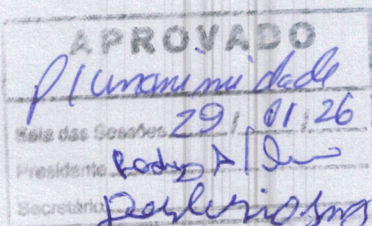 APROVADO
p/unanimidade
Sala das Sessões 29/01/26
Presidente
Secretário